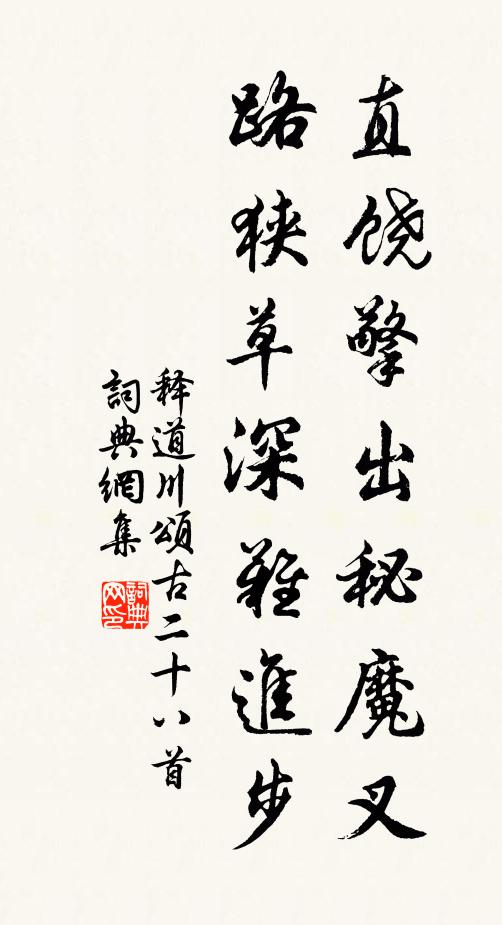 直饶擎出秘魔叉
路狭草深难進步
释道川頌古二十八首
詞典網集
詞典网印